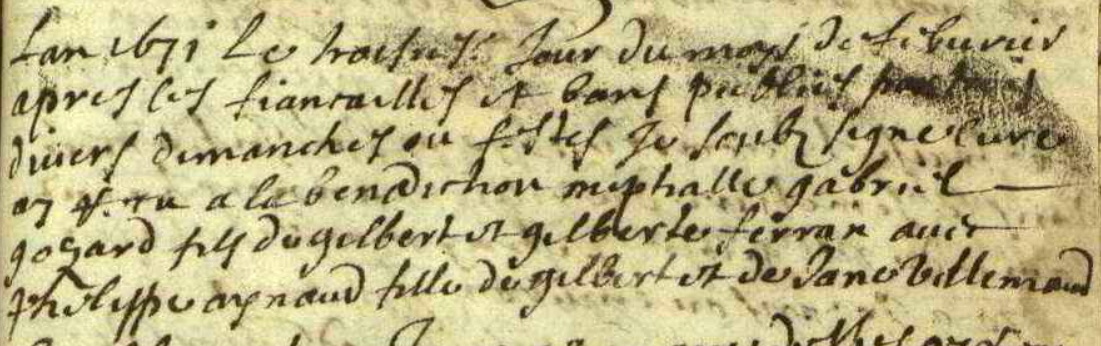 Lan 1671 Le troisies. Jour du moys de feburier
apres les fiancailles et bans publies par trois
divers dimanches ou festes Je soubz signe cure
ay receu a la benediction nuptialle gabriel
gozard fils de gilbert et gilberte ferran avec
philippe aynaud fille de gilbert et de Jane villemaud